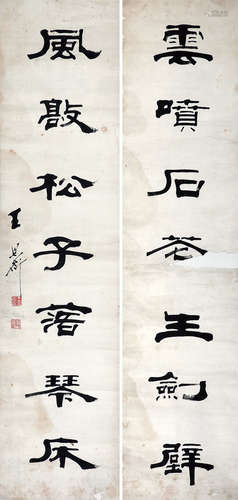 雲噴石花生劍壁
風敲松子落琴床
王